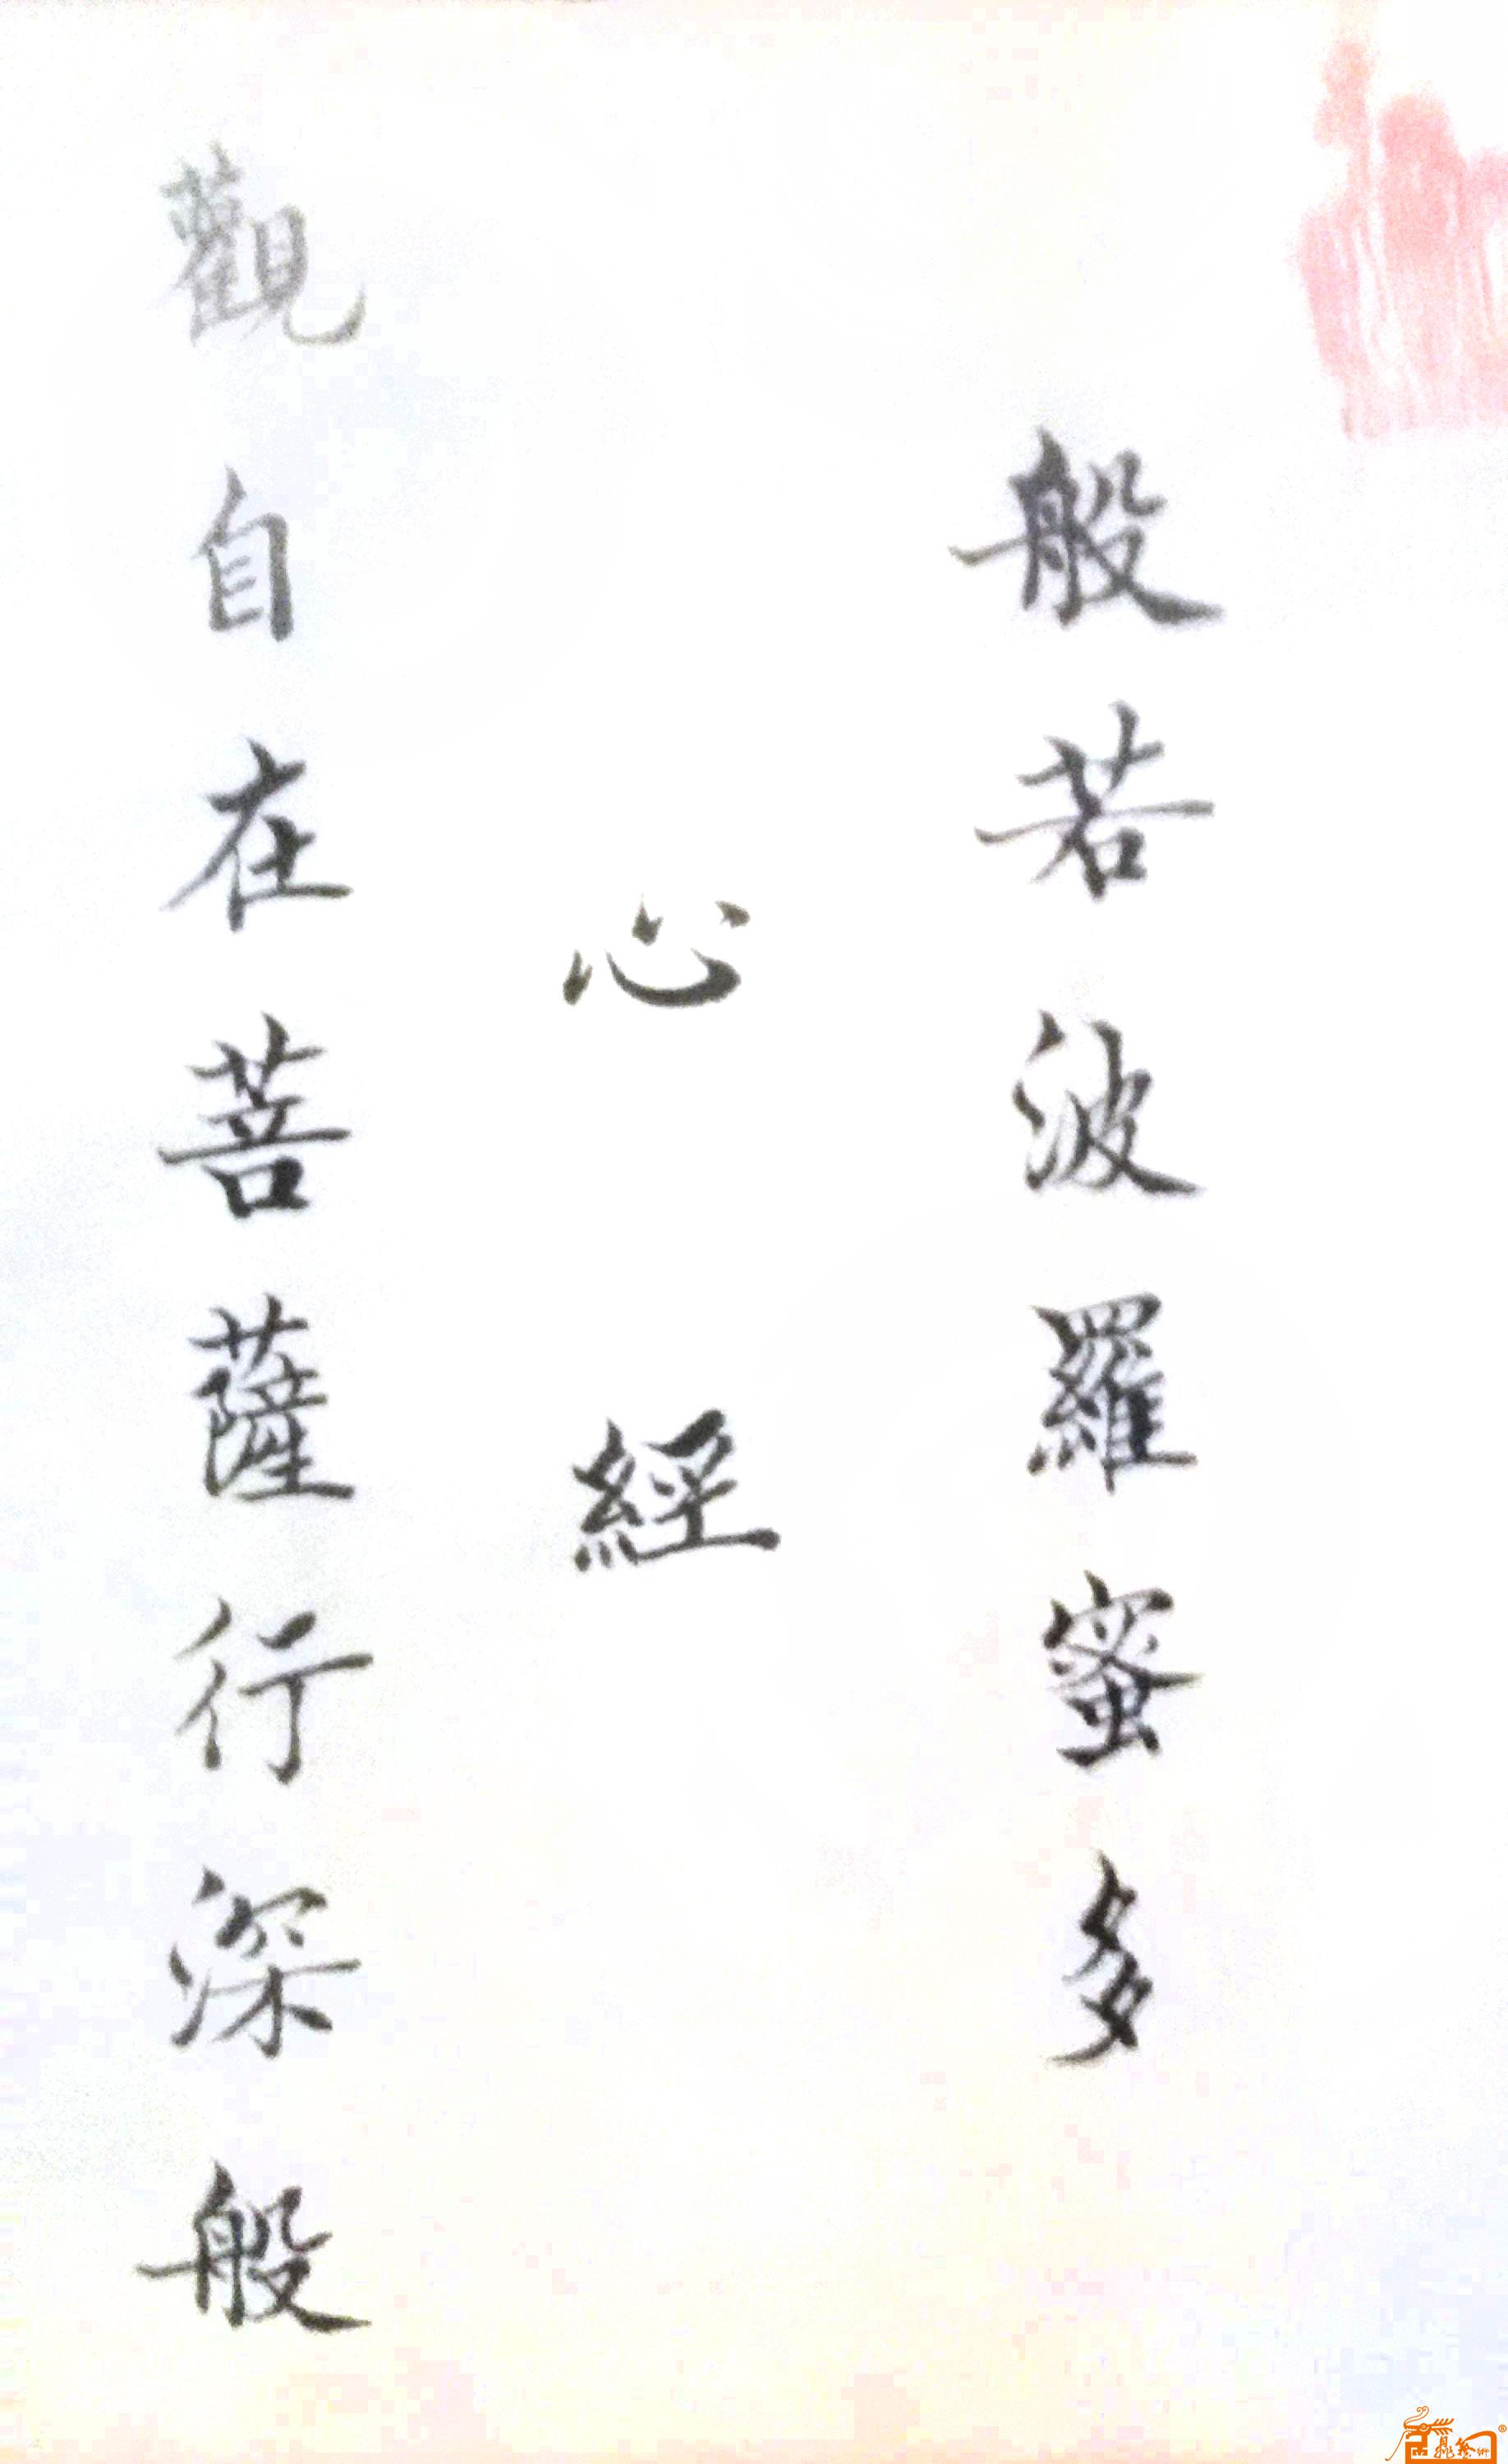 般若波羅蜜多
心經
觀自在菩薩行深般